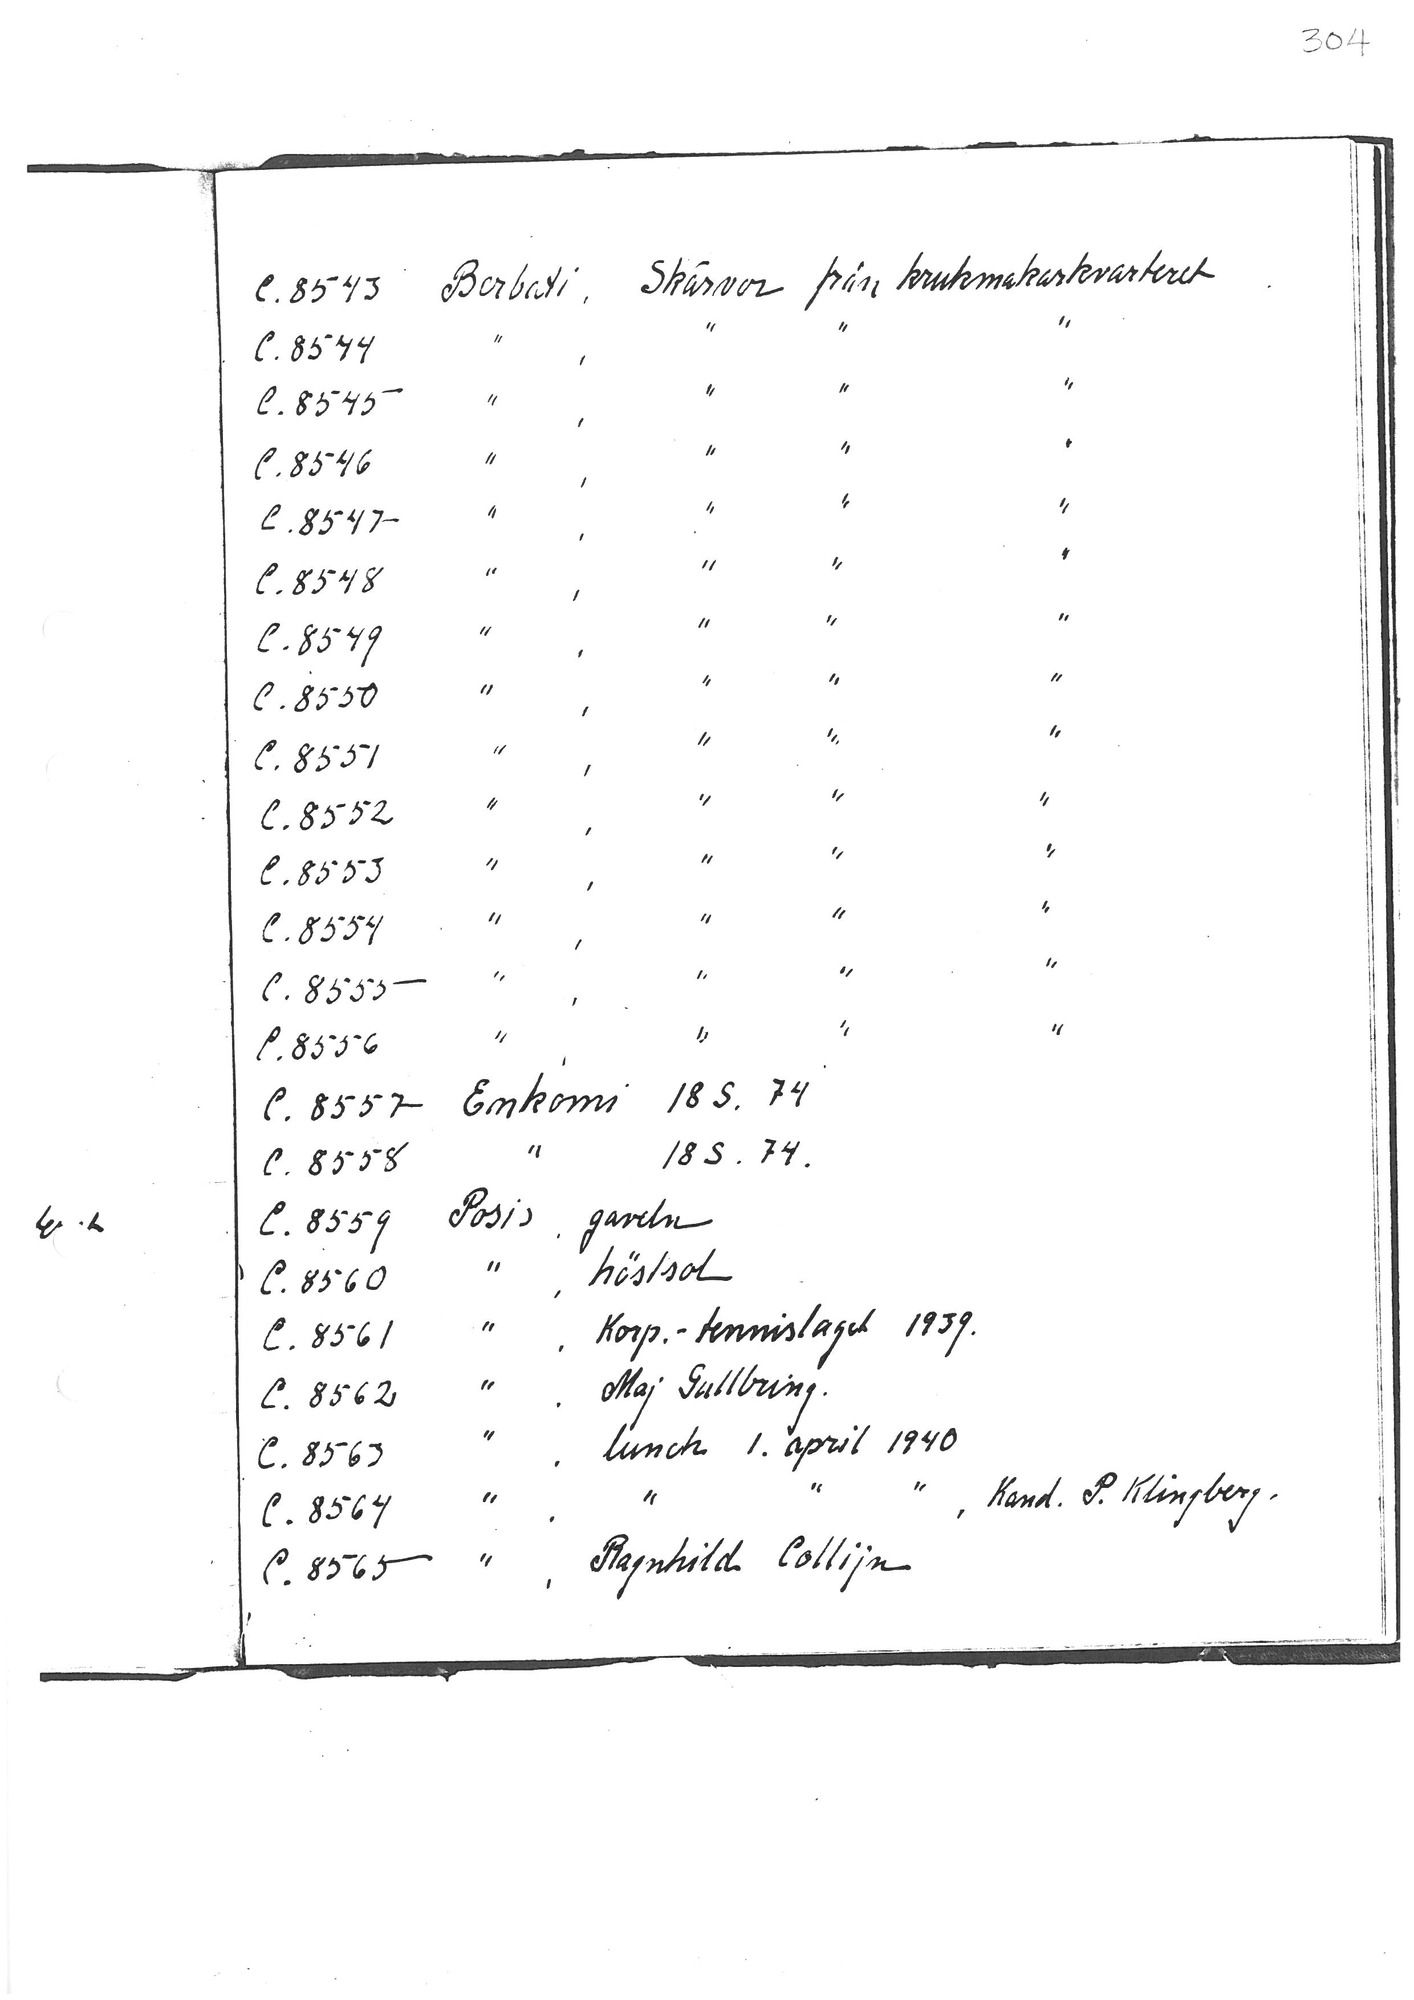 304
C.8543 Berbati, Skärvor från krukmakarkvarteret
C.8544 " , " " "
C.8545 " , " " "
C.8546 " , " " "
C.8547 " , " " "
C.8548 " , " " "
C.8549 " , " " "
C.8550 " , " " "
C.8551 " , " " "
C.8552 " , " " "
C.8553 " , " " "
C.8554 " , " " "
C.8555 " , " " "
C.8556 " , " " "
C.8557 Enkomi 18 S. 74
C.8558 " 18 S. 74.
C.8559 Posis, gaveln
C.8560 " , höstsol
C.8561 " , Korp.-tennislaget 1939.
C.8562 " , Maj Gullbring.
C.8563 " , lunch 1. april 1940
C.8564 " , " " " , Kand. P. Klingberg.
C.8565 " , Ragnhild Collijn